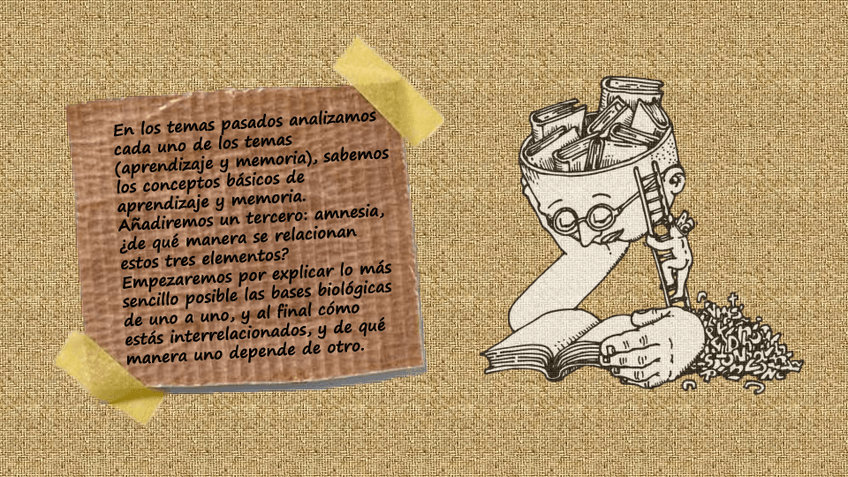 En los temas pasados analizamos
cada uno de los temas
(aprendizaje y memoria), sabemos
los conceptos básicos de
aprendizaje y memoria.
Añadiremos un tercero: amnesia,
¿de qué manera se relacionan
estos tres elementos?
Empezaremos por explicar lo más
sencillo posible las bases biológicas
de uno a uno, y al final cómo
estás interrelacionados, y de qué
manera uno depende de otro.